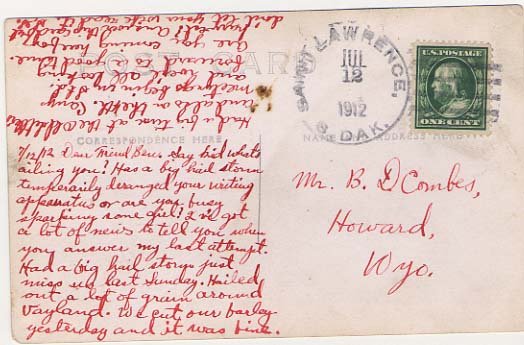 POST CARD
CORRESPONDENCE HERE
NAME ADDRESS HERE
SAINT LAWRENCE,
JUL
12
1912
S. DAK.
U.S. POSTAGE
ONE CENT
7/12/12 Dear Friend Ben: Say kid what's
ailing you? Has a big hail storm
temperarily deranged your writing
apparatus or are you busy
sparking some girl? I've got
a lot of news to tell you when
you answer my last attempt.
Had a big hail storm just
miss us last Sunday. Hailed
out a lot of grain around
Vayland. We cut our barley
yesterday and it was fine.
Had a big time at the
and also on the 4th. Camp
meetings begin in
and we're all looking
forward to a good time.
Are you coming here
Answer this
don't let your wife read it.
Mr. B. D Combes,
Howard,
Wyo.